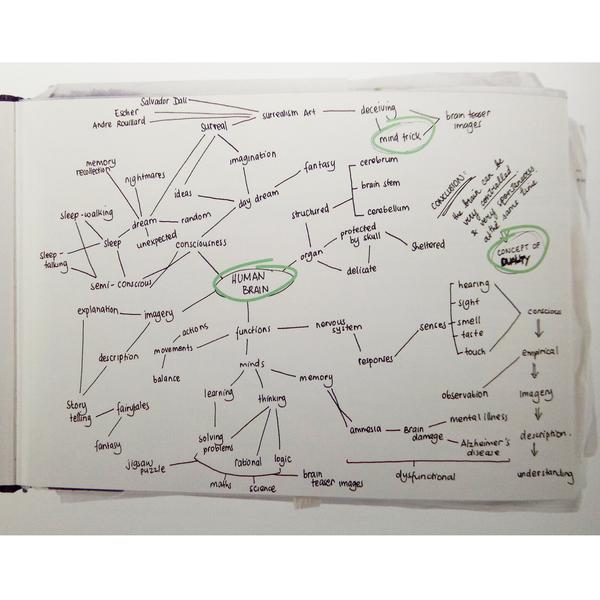 Salvador Dali
Escher
Andre Rouillard
surrealism Art
deceiving
mind trick
brain teaser
images
surreal
imagination
memory
recollection
nightmares
ideas
day dream
fantasy
structured
cerebrum
brain stem
cerebellum
CONCLUSION:
the brain can be
very controlled
& very spontaneous
at the same time
CONCEPT OF
DUALITY
sleep-walking
dream
random
unexpected
sleep
sleep-
talking
semi-conscious
consciousness
organ
protected
by skull
delicate
sheltered
HUMAN
BRAIN
explanation
imagery
description
story
telling
fairytales
fantasy
actions
movements
balance
functions
nervous
system
responses
senses
hearing
sight
smell
taste
touch
conscious
empirical
observation
imagery
description.
understanding
minds
learning
thinking
memory
solving
problems
rational
logic
jigsaw
puzzle
maths
science
brain
teaser images
amnesia
Brain
damage
mental illness
Alzheimer's
disease
dysfunctional